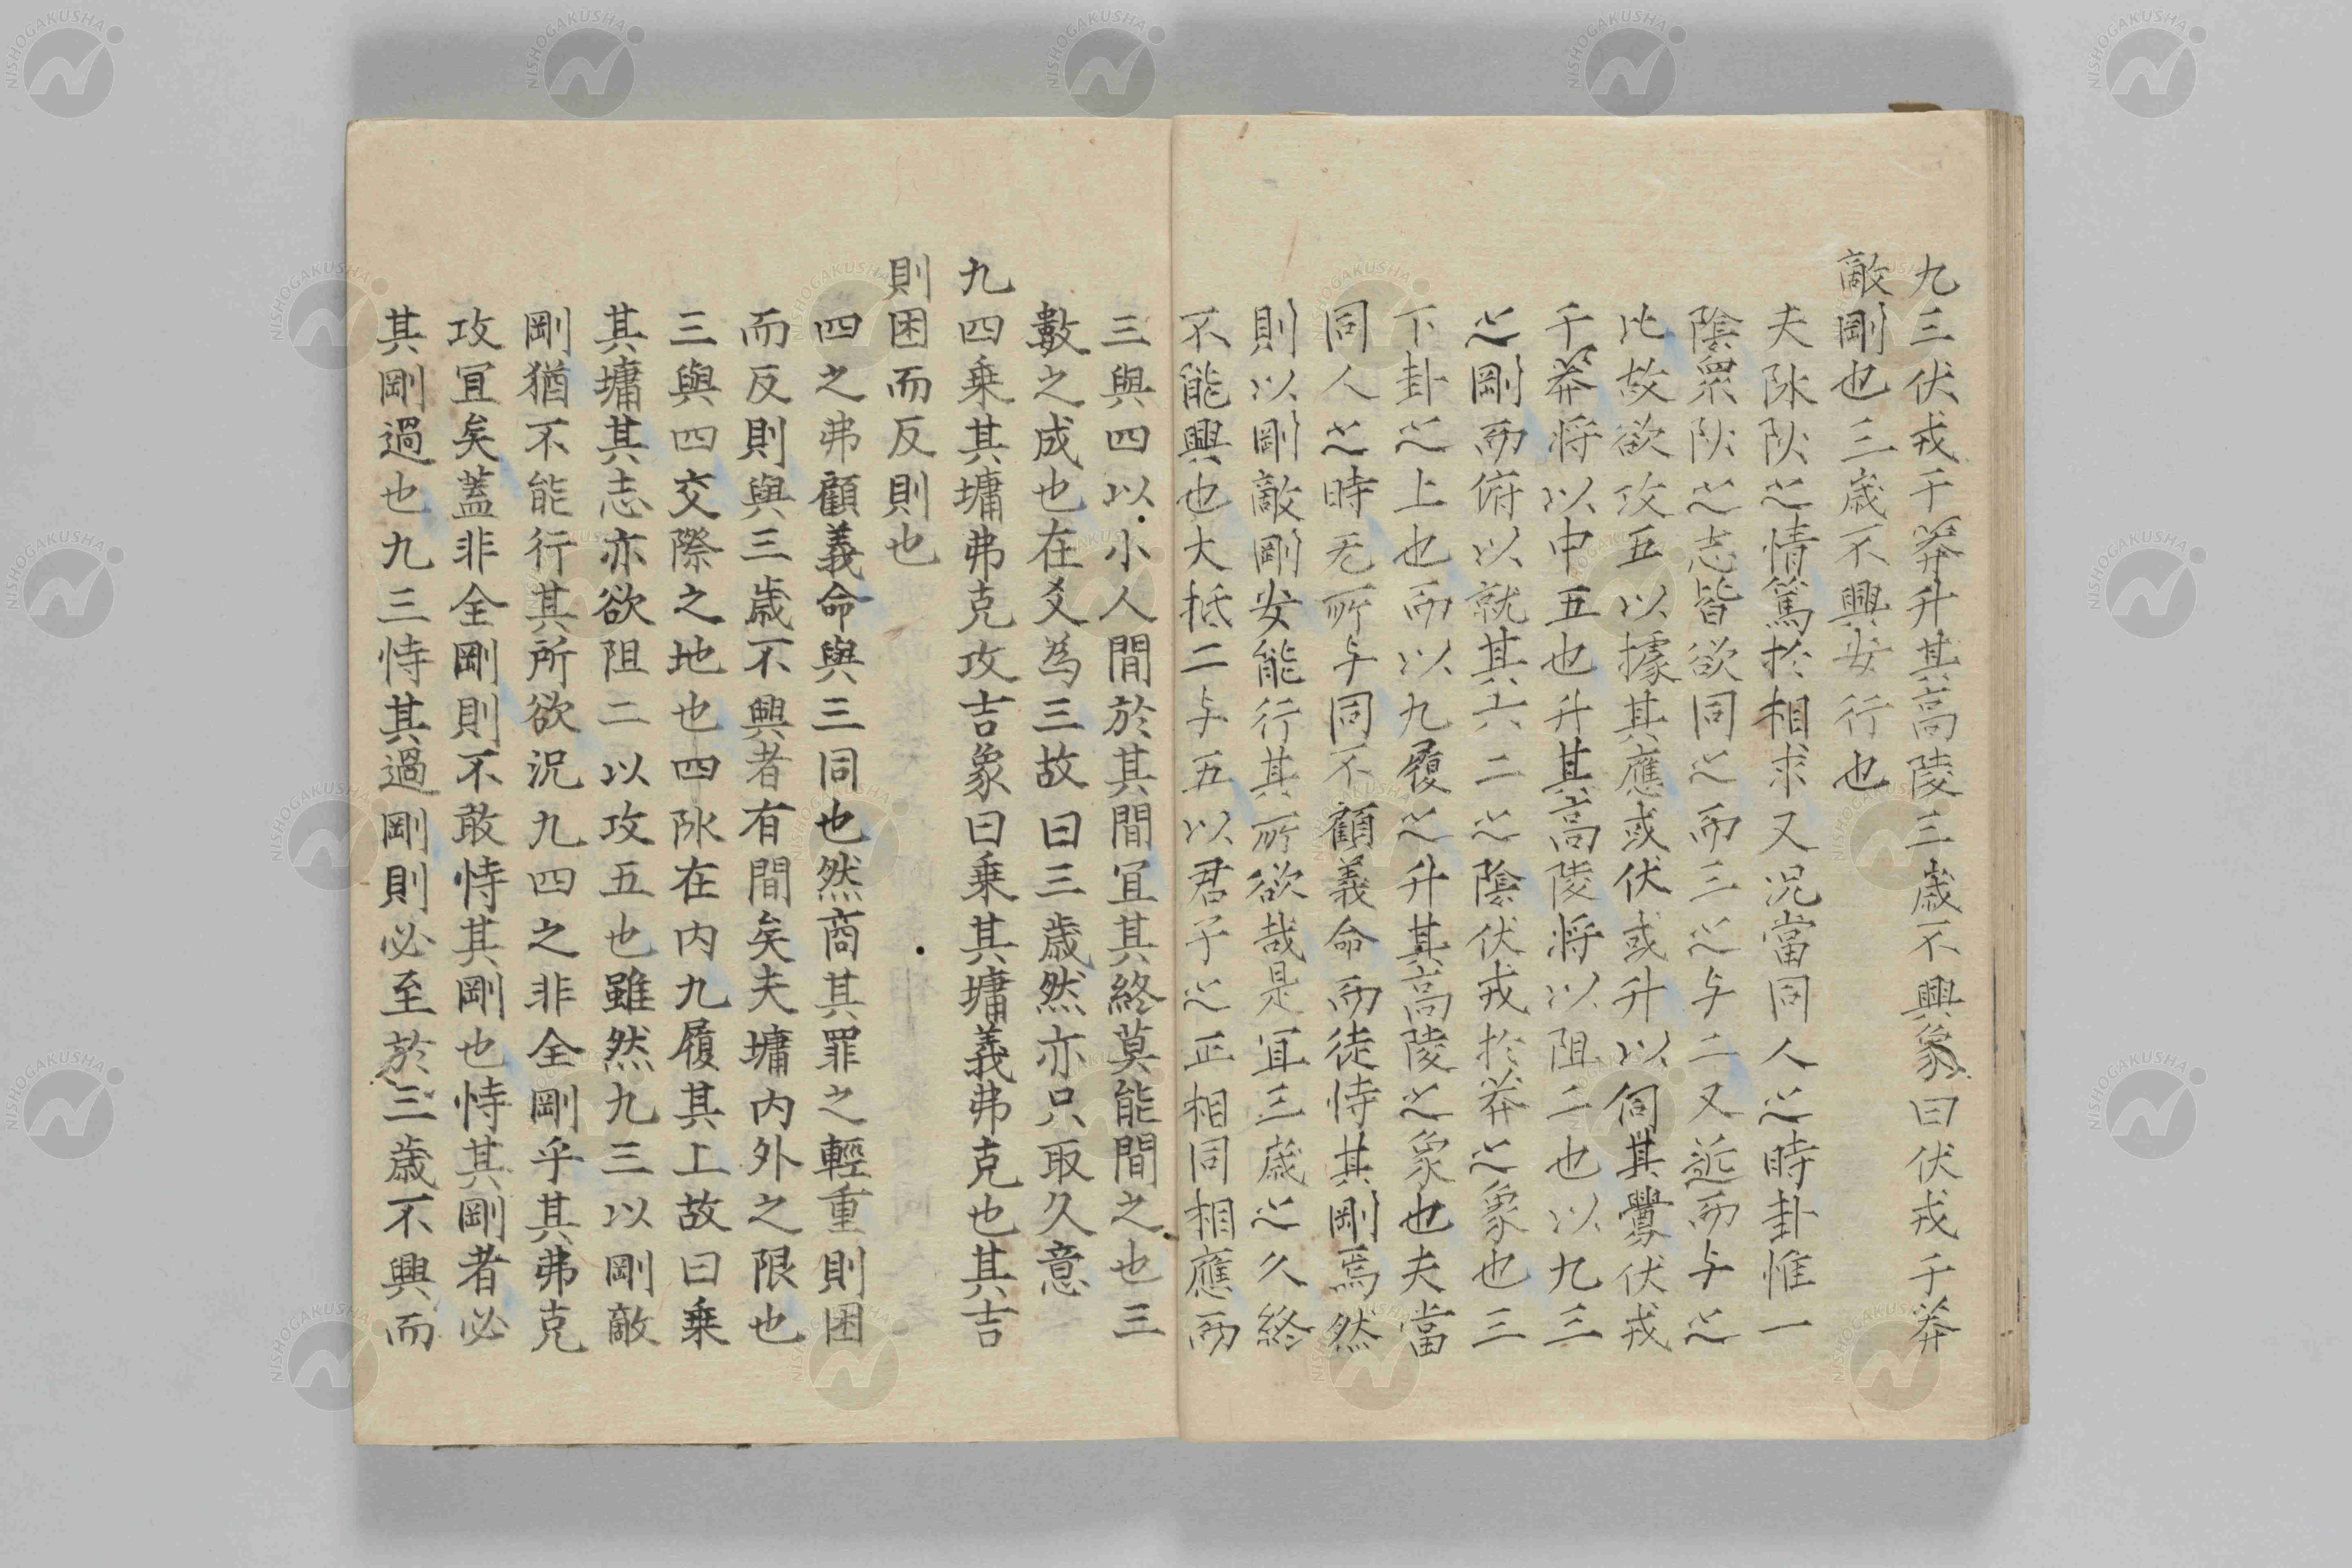 九三伏戎于莽升其高陵三歳不興象曰伏戎于莽
敵剛也三歳不興安行也
夫陰陽之情篤於相求又況當同人之時卦惟一
陰衆陽之志皆欲同之而三之与二又近而与之
比故欲攻五以據其應或伏或升以伺其釁伏戎
于莽将以中五也升其高陵将以阻二也以九三
之剛而俯以就其六二之陰伏戎於莽之象也三
下卦之上也而以九履之升其高陵之象也夫當
同人之時无所与同不顧義命而徒恃其剛焉然
則以剛敵剛安能行其所欲哉是宜三歳之久終
不能興也大抵二与五以君子之正相同相應而
三與四以小人間於其間宜其終莫能間之也三
數之成也在爻為三故曰三歳然亦只取久意
九四乗其墉弗克攻吉象曰乗其墉義弗克也其吉
則困而反則也
四之弗顧義命與三同也然商其罪之輕重則困
而反則與三歳不興者有間矣夫墉内外之限也
三與四交際之地也四陰在内九履其上故曰乗
其墉其志亦欲阻二以攻五也雖然九三以剛敵
剛猶不能行其所欲況九四之非全剛乎其弗克
攻宜矣蓋非全剛則不敢恃其剛也恃其剛者必
其剛過也九三恃其過剛則必至於三歳不興而